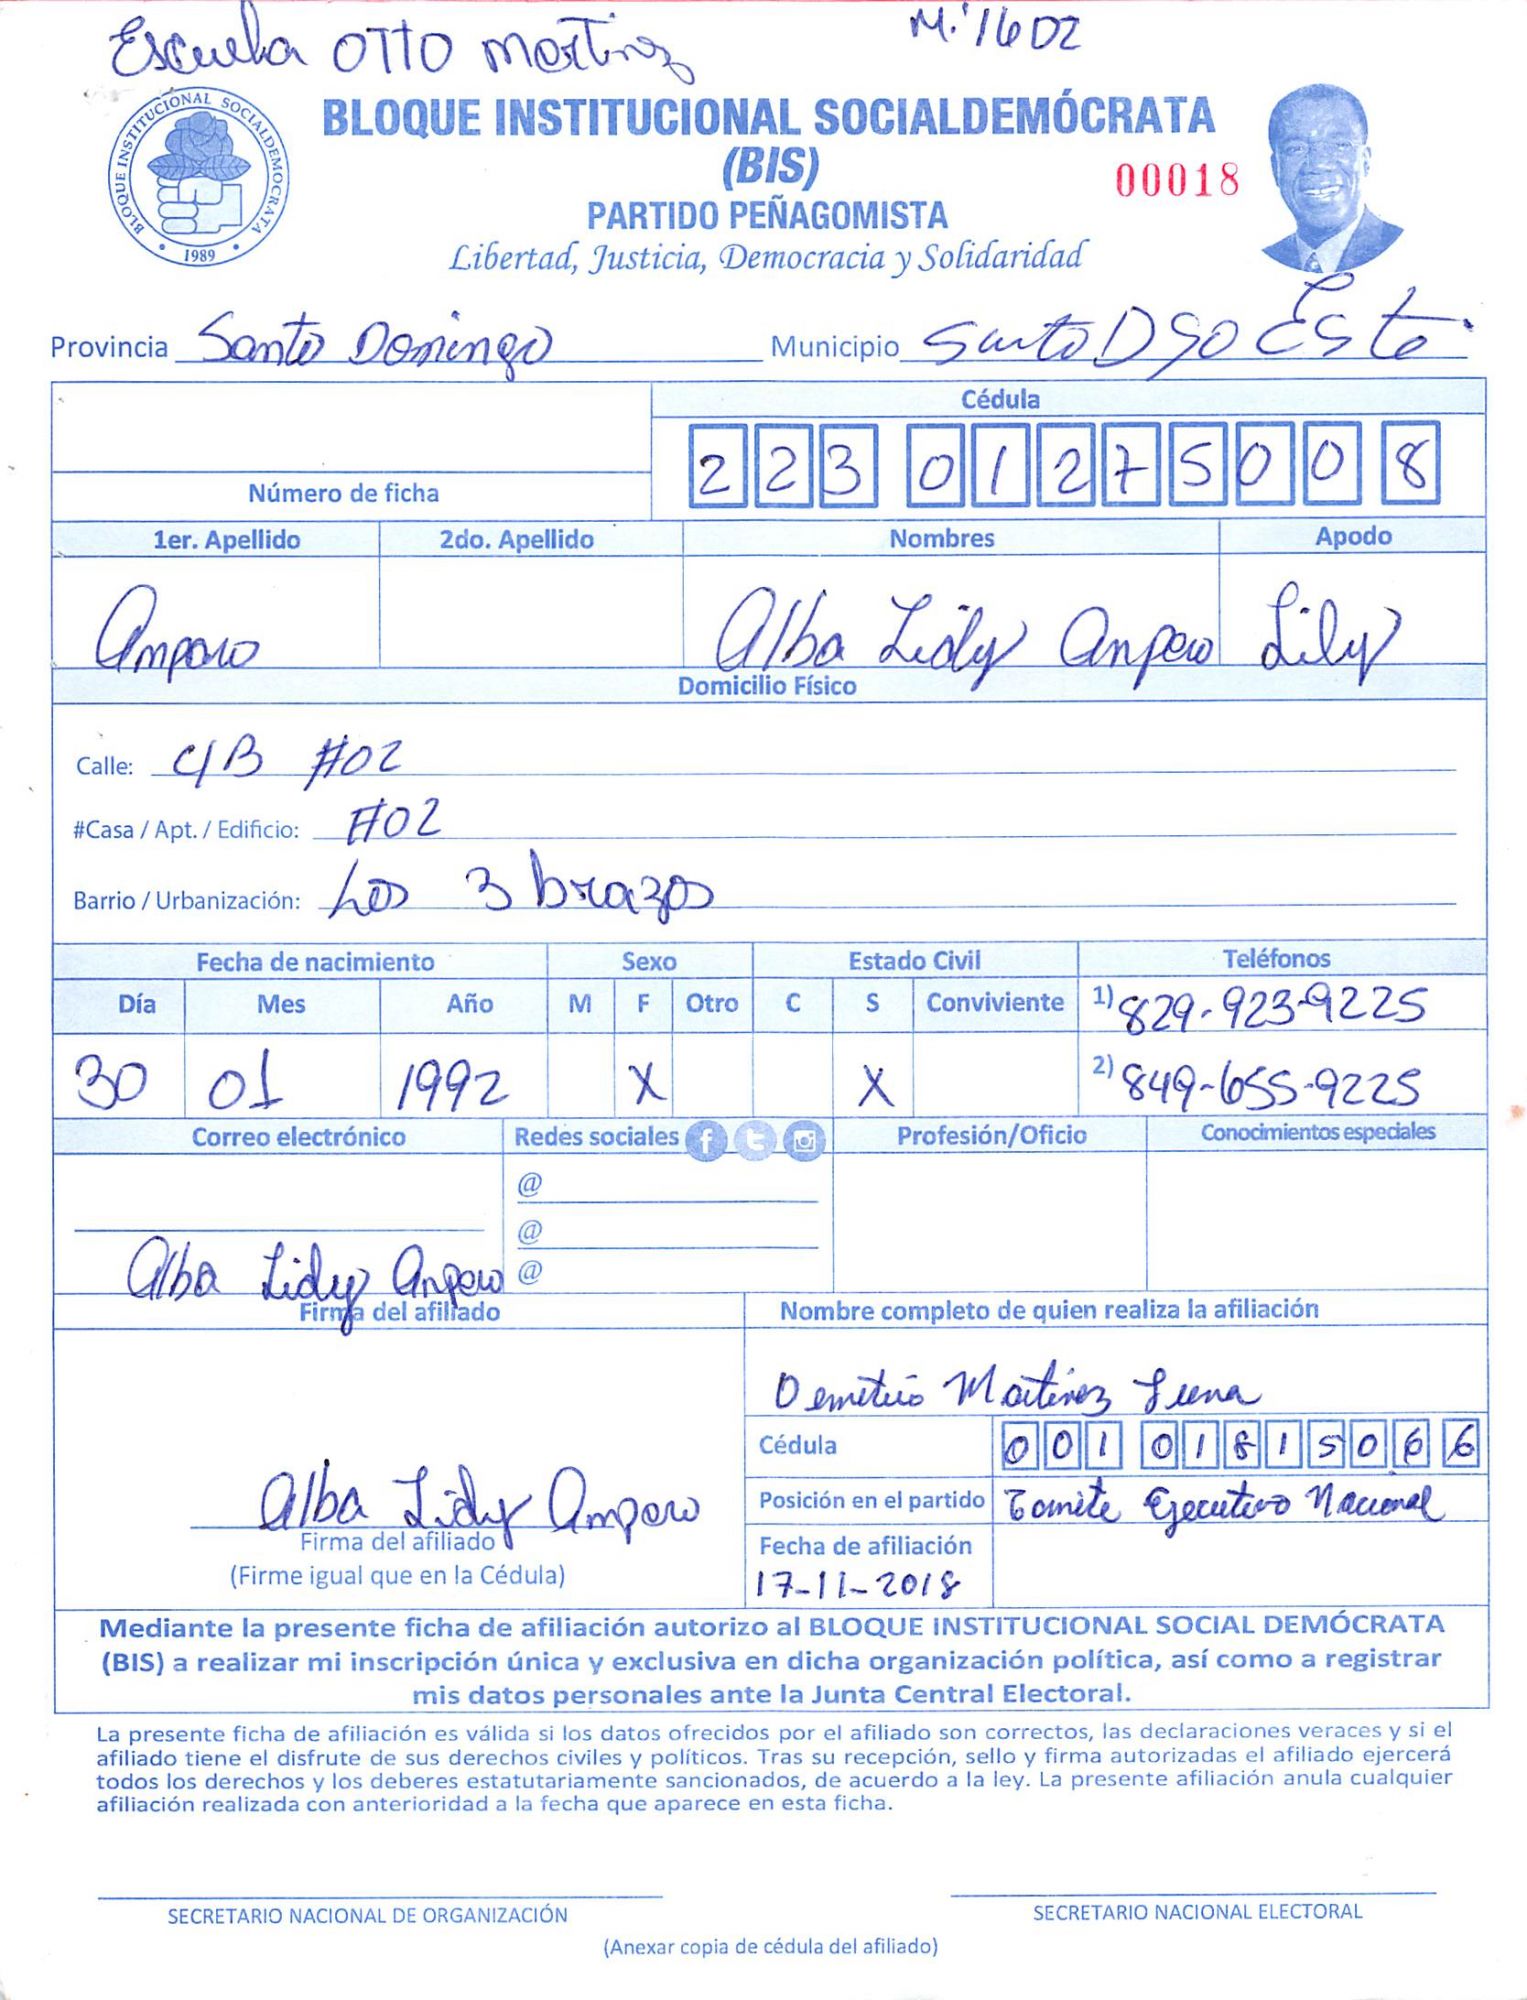 Escuela OTTO Martinez M: 1602
BLOQUE INSTITUCIONAL SOCIALDEMOCRATA
1989
BLOQUE INSTITUCIONAL SOCIALDEMÓCRATA
(BIS)
00018
PARTIDO PEÑAGOMISTA
Libertad, Justicia, Democracia y Solidaridad
Provincia Santo Domingo Municipio Santo DGO Este
Cédula
2 2 3 0 1 2 7 5 0 0 8
Número de ficha
1er. Apellido 2do. Apellido Nombres Apodo
Amparo Alba Lidy Amparo Lily
Domicilio Físico
Calle: C/B #02
#Casa / Apt. / Edificio: #02
Barrio / Urbanización: Los 3 brazos
Fecha de nacimiento Sexo Estado Civil Teléfonos
Día Mes Año M F Otro C S Conviviente 1) 829-923-9225
30 01 1992 X X 2) 849-655-9225
Correo electrónico Redes sociales Profesión/Oficio Conocimientos especiales
@
@
Alba Lidy Amparo @
Firma del afiliado Nombre completo de quien realiza la afiliación
Demetrio Martinez Luna
Cédula 0 0 1 0 1 8 1 5 0 6 6
Alba Lidy Amparo Posición en el partido Comite Ejecutivo Nacional
Firma del afiliado Fecha de afiliación
(Firme igual que en la Cédula) 17-11-2018
Mediante la presente ficha de afiliación autorizo al BLOQUE INSTITUCIONAL SOCIAL DEMÓCRATA
(BIS) a realizar mi inscripción única y exclusiva en dicha organización política, así como a registrar
mis datos personales ante la Junta Central Electoral.
La presente ficha de afiliación es válida si los datos ofrecidos por el afiliado son correctos, las declaraciones veraces y si el
afiliado tiene el disfrute de sus derechos civiles y políticos. Tras su recepción, sello y firma autorizadas el afiliado ejercerá
todos los derechos y los deberes estatutariamente sancionados, de acuerdo a la ley. La presente afiliación anula cualquier
afiliación realizada con anterioridad a la fecha que aparece en esta ficha.
SECRETARIO NACIONAL DE ORGANIZACIÓN SECRETARIO NACIONAL ELECTORAL
(Anexar copia de cédula del afiliado)